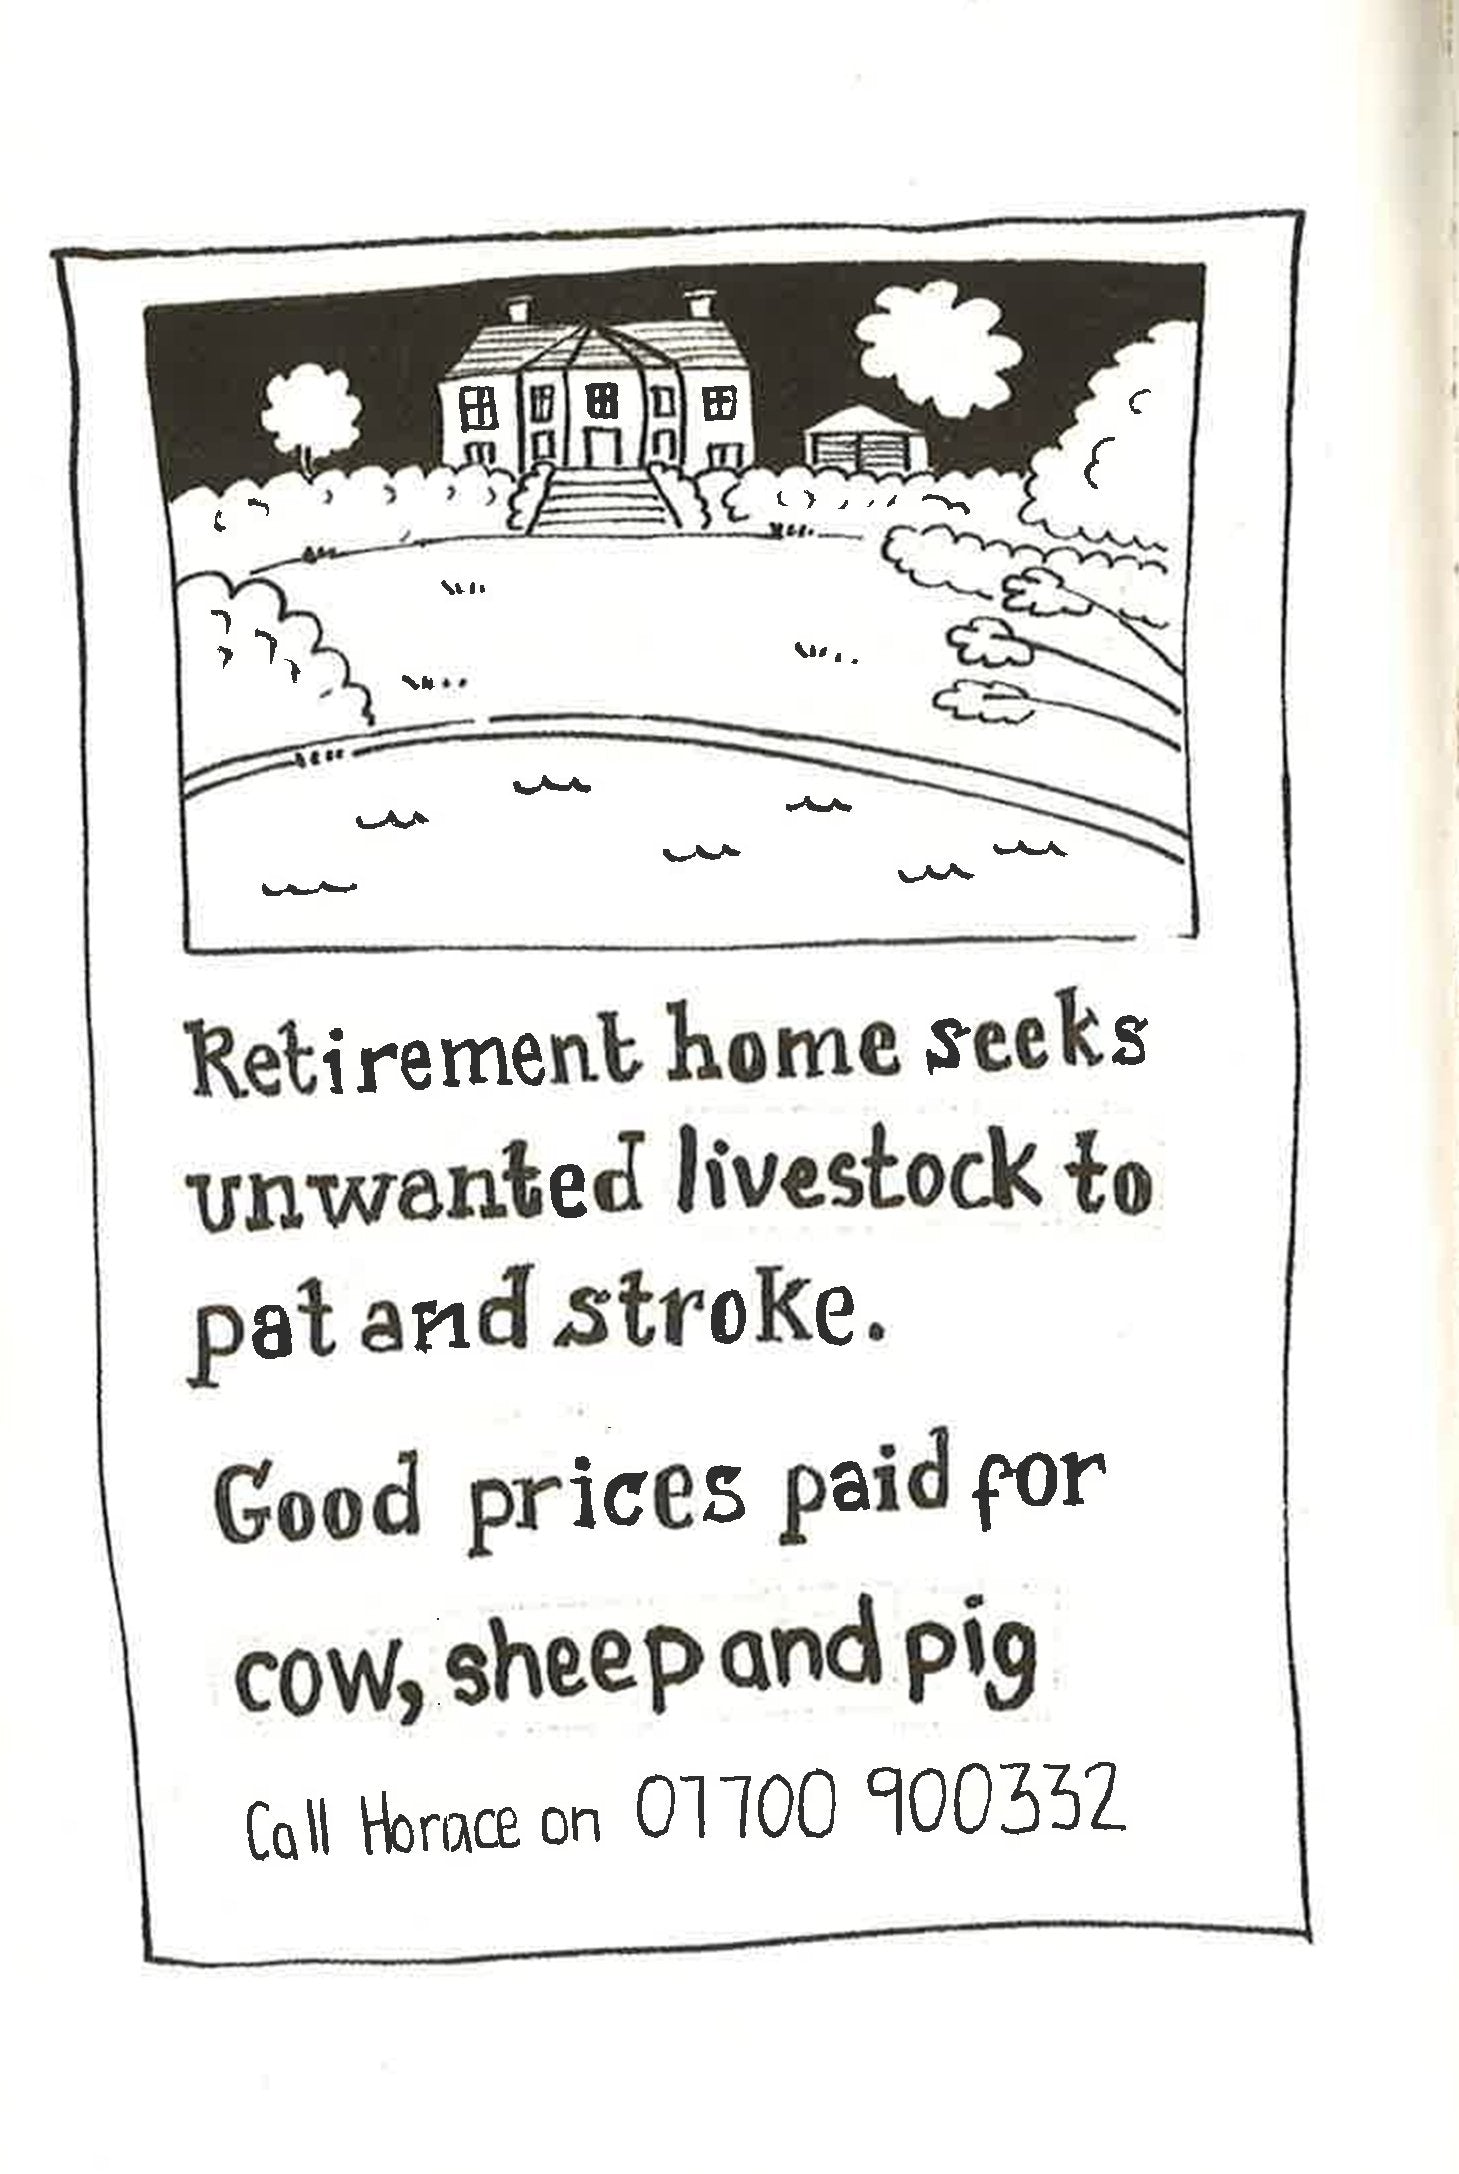 Retirement home seeks
unwanted livestock to
pat and stroke.
Good prices paid for
cow, sheep and pig
Call Horace on 07700 900332